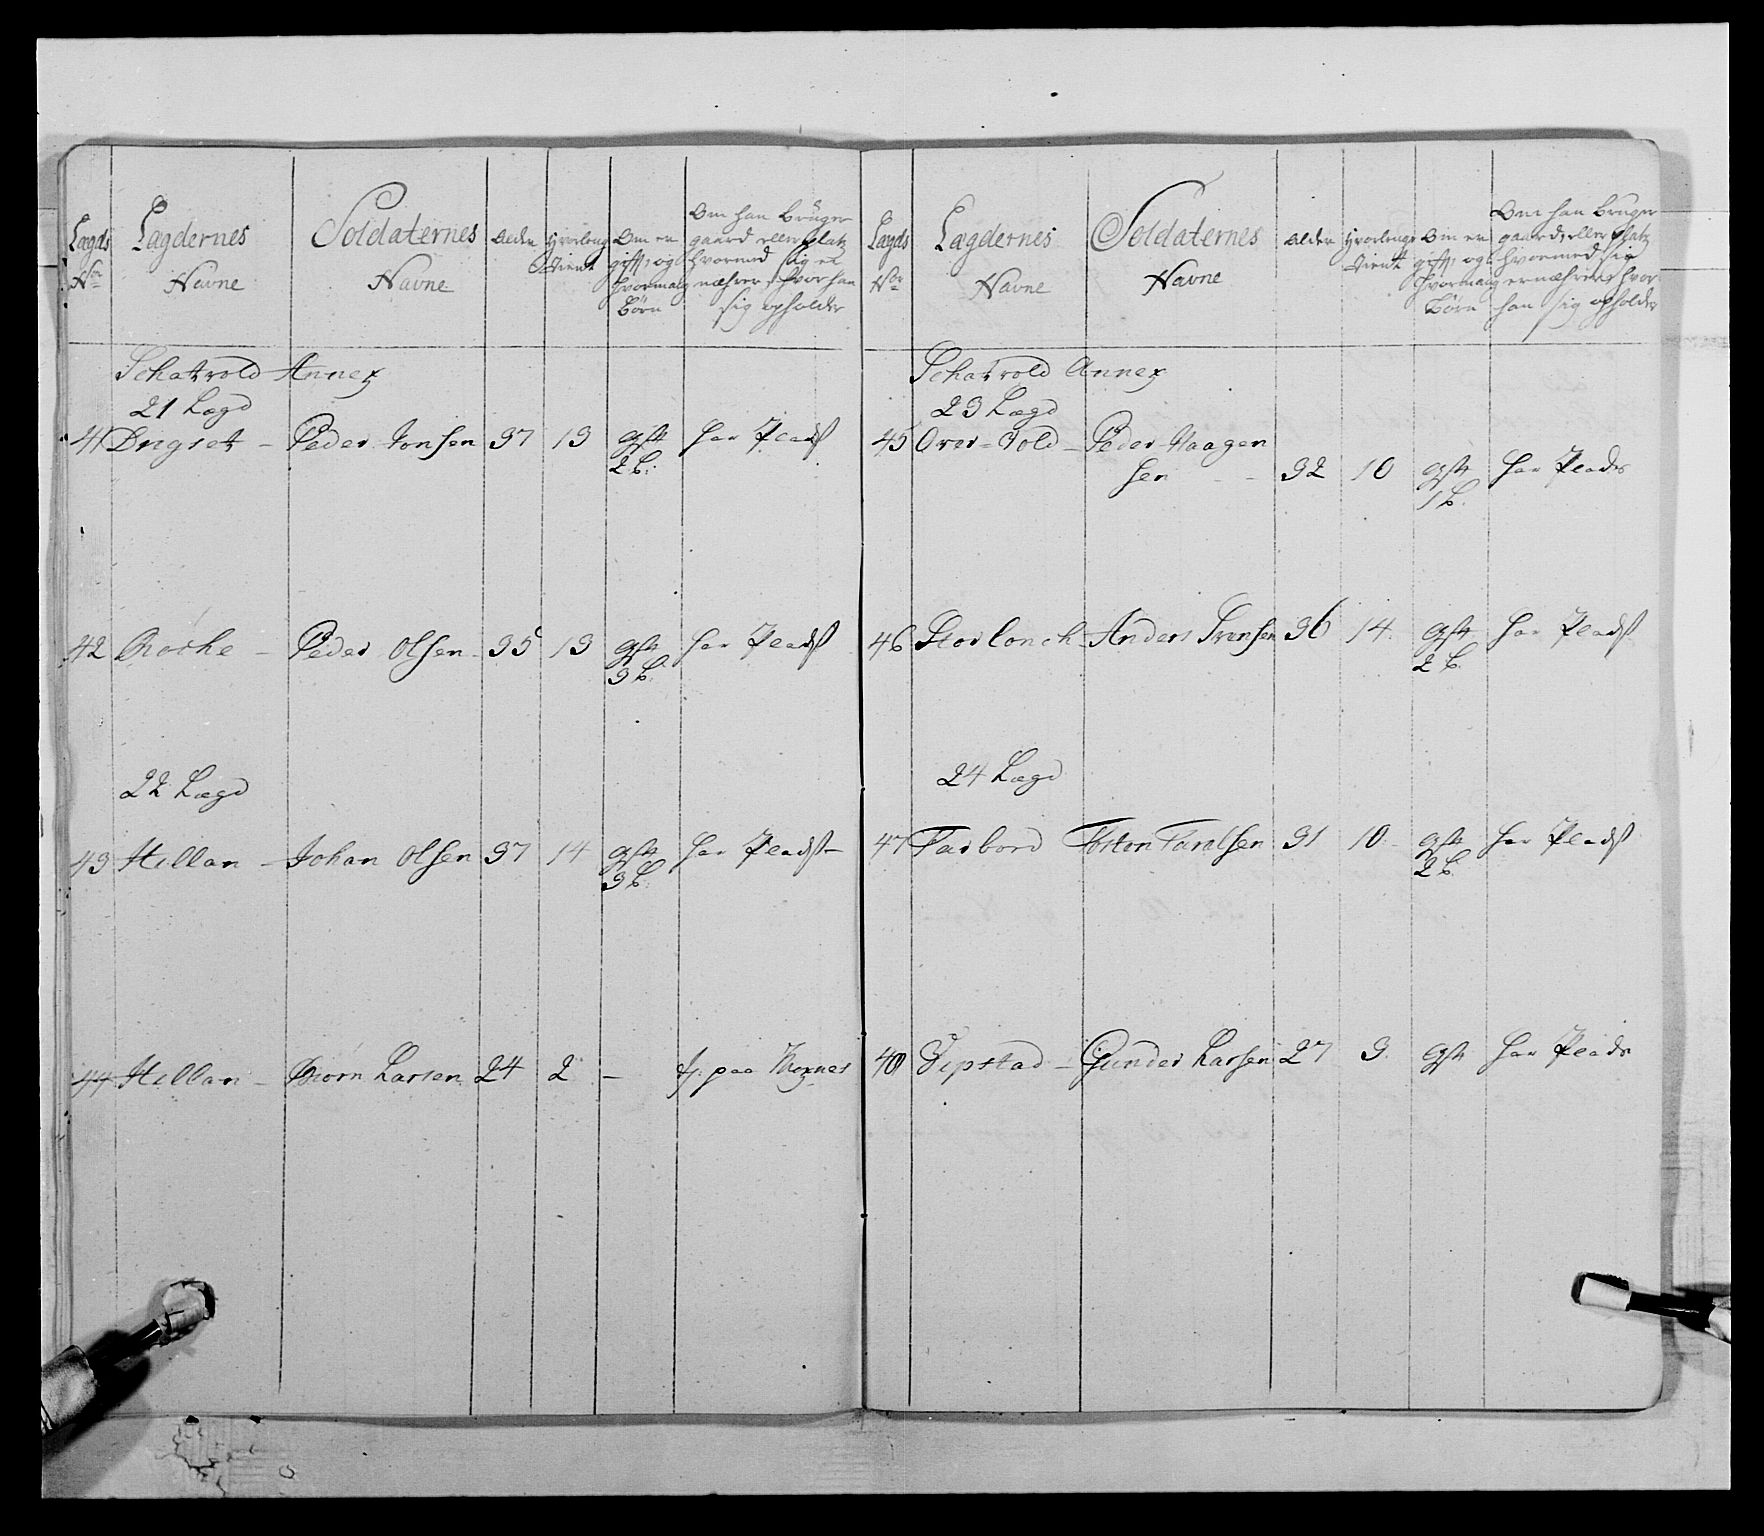 Lægds No Lægdernes Navne Soldaternes Navne Alder Hvorlenge Tient Om er gift, og hvormang Børn Om han bruger gaard eller platz hvormed sig er næhrer, hvor han sig opholder
Schatvold Annex
21 Lægd
41 Drugset - Peder Jonsen 37 13 gift har Pladß
2 b:
42 Røske - Peder Olsen 35 13 gift har Pladß
3 b:
22 Lægd
43 Hellan - Johan Olsen 37 14 gift har Pladß -
3 b:
44 Hellan - Biørn Larsen 24 2 - paa
Lægds No Lægdernes Navne Soldaternes Navne Alder Hvorlenge Tient Om er gift, og hvormang Børn Om han bruger gaard, eller platz hvormed sig ernæhrer, hvor han sig opholder
Schatvold Annex
23 Lægd
45 Over-Vold - Peder Haagen
sen - - 32 10 gift har Plads
1 b:
46 - Anders 36 14 gift har Pladß
2 b.
24 Lægd
47 Farbord 31 10 gift har Pladß
2 b
48 Vepstad - Gunder Larsen 27 3. gift har Plads